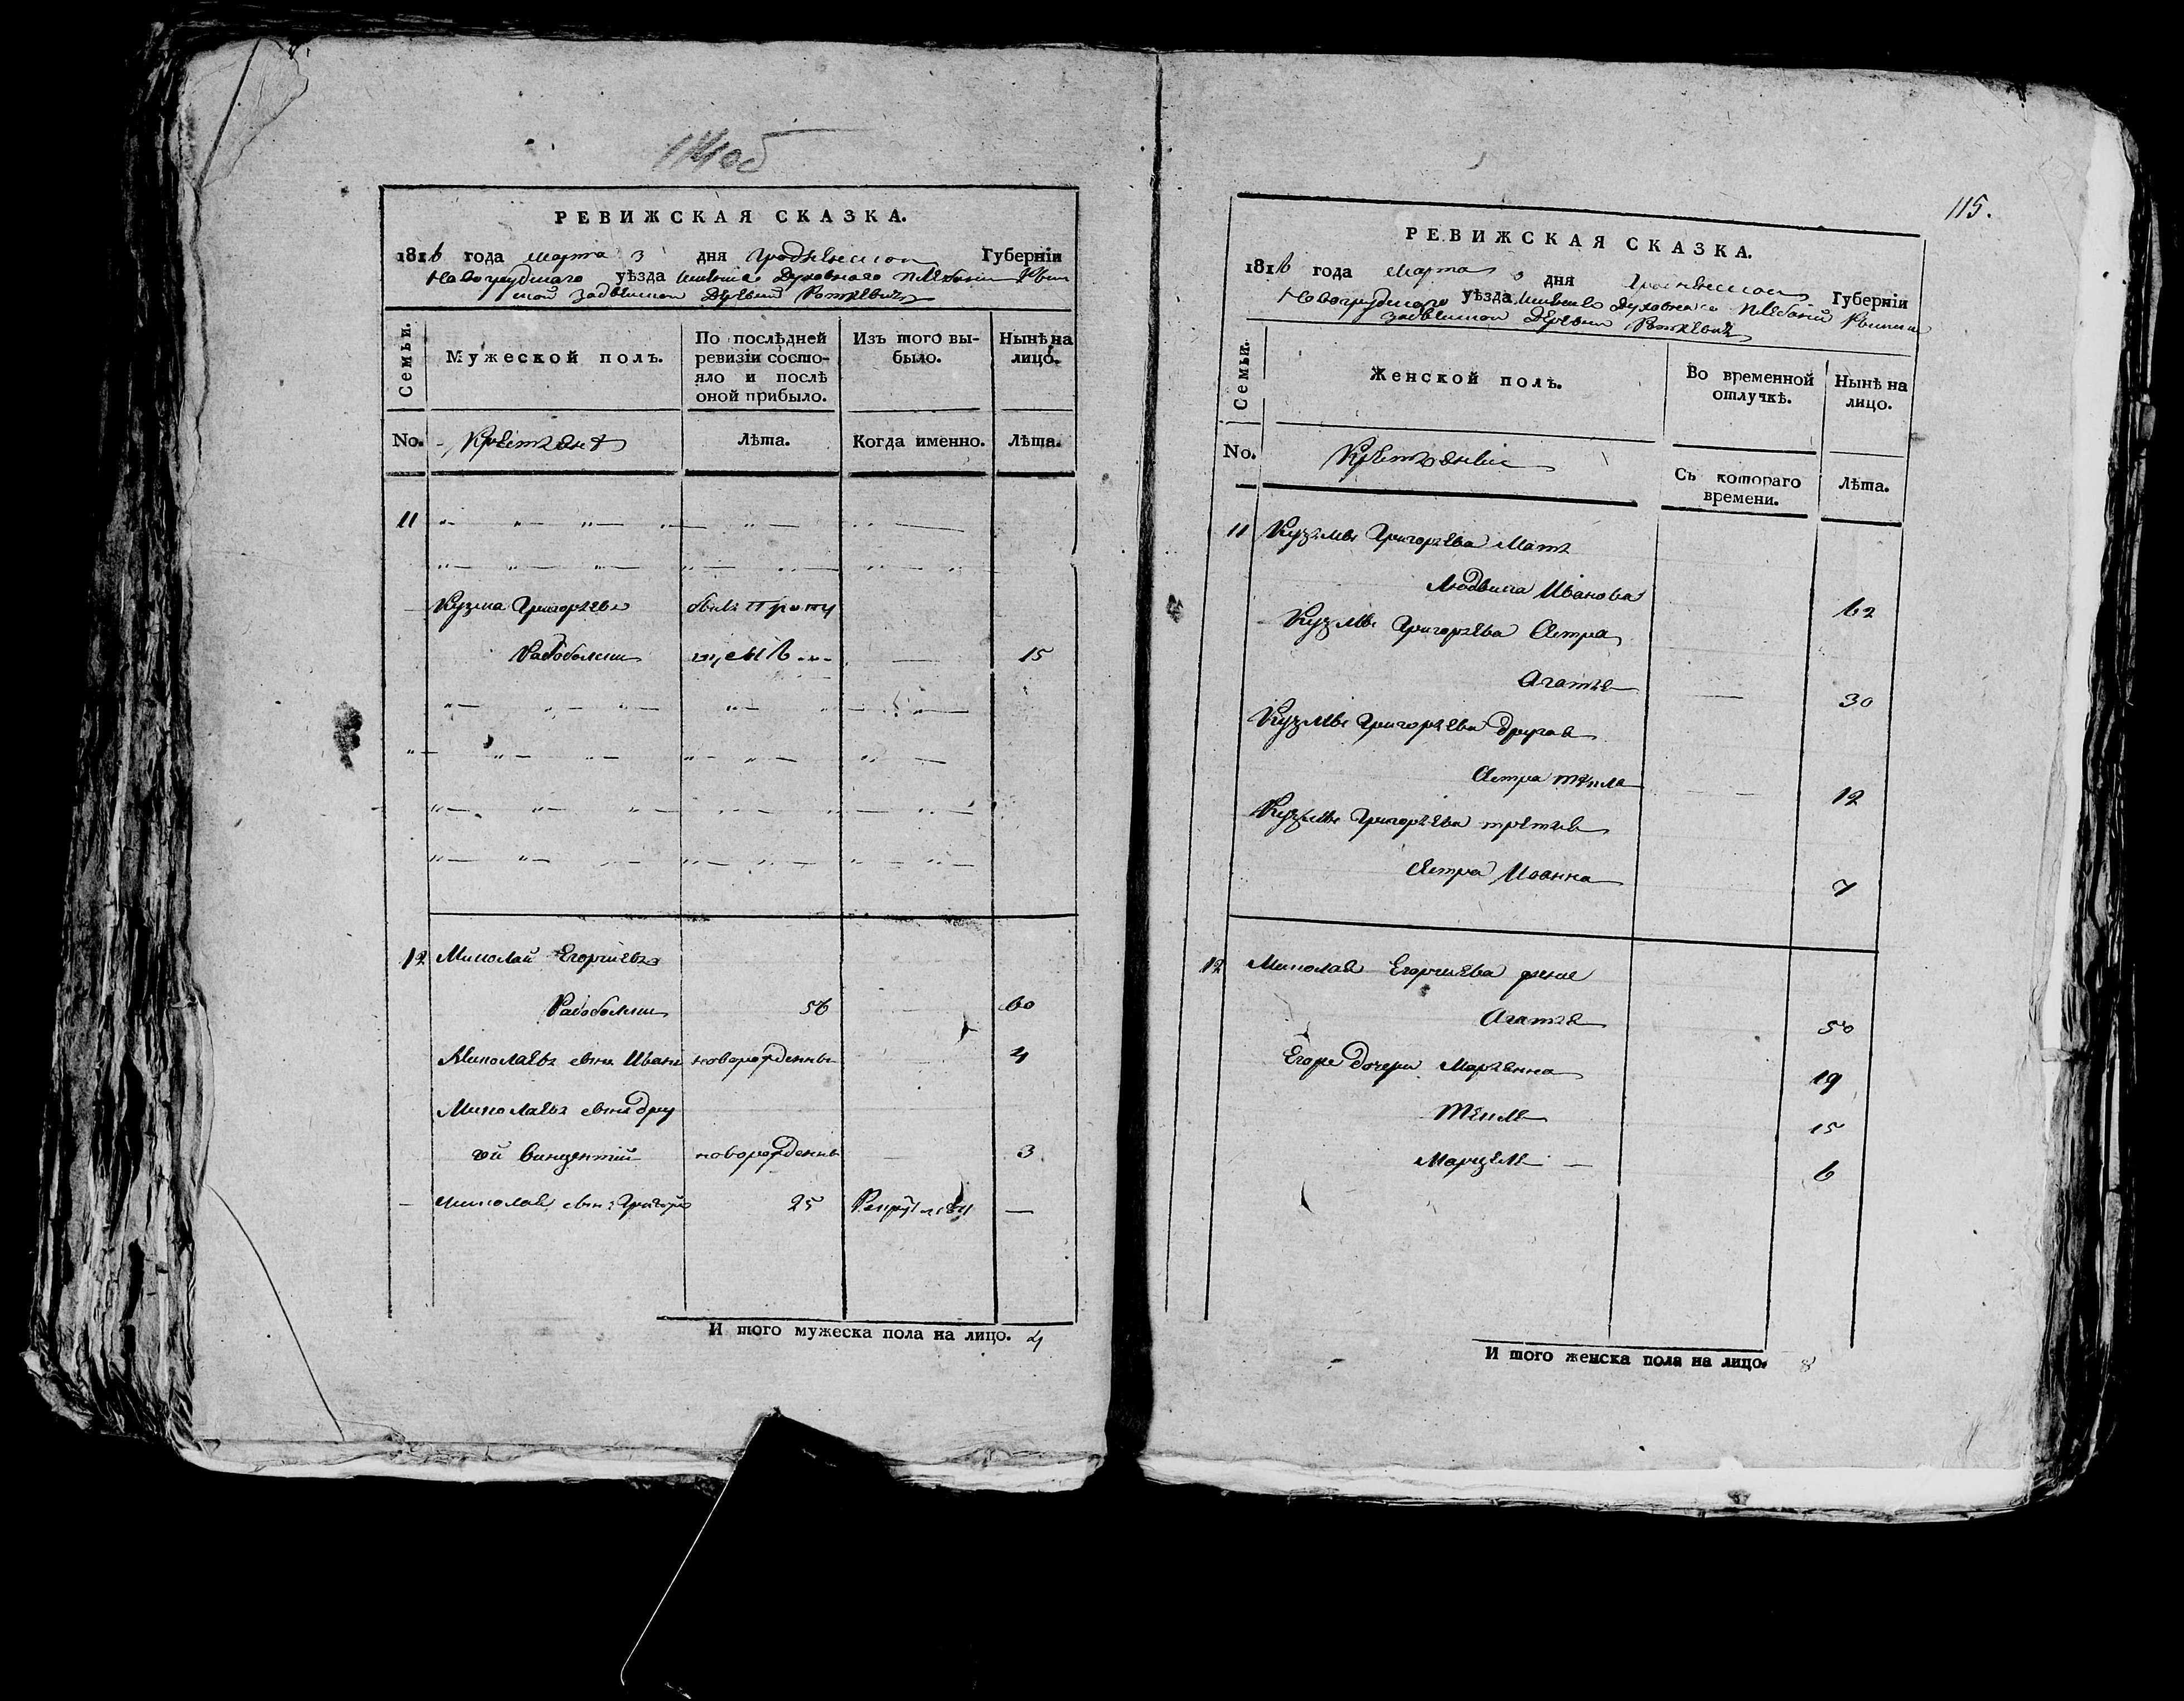 114об
РЕВИЖСКАЯ СКАЗКА.
1816 года марта 3 дня Гродненской Губерніи
Новогрудскаго уѣзда имѣнія Духовнаго Плебаніи
Деревни
Семьи.
Мужеской полъ.
По послѣдней ревизіи состояло и послѣ оной прибыло.
Изъ того выбыло.
Нынѣ на лицо.
No. Крестьянъ
Лѣта.
Когда именно.
Лѣта.
11
Кузма Григорьевъ былъ пропу
щенъ 15
12 Миколай Егоріиевъ
56 60
Миколаевъ сынъ Иванъ новорожденны 4
Миколаевъ сынъ дру
гой Винцентій новорожденны 3
Миколая сынъ Григорій 25 —
И того мужеска пола на лицо. 4
115.
РЕВИЖСКАЯ СКАЗКА.
1816 года марта 3 дня Гродненской Губерніи
Новогрудскаго уѣзда имѣнія Духовнаго Плебаніи
Деревни
Семьи.
Женской полъ.
Во временной отлучкѣ.
Нынѣ на лицо.
No. Крестьянки
Съ котораго времени.
Лѣта.
11 Кузьмы Григорьева Мать
Людвика Иванова 62
Кузмы Григорьева Сестра
Агатья 30
Кузмы Григорьева другая
Сестра Текля 12
Кузьмы Григорьева третья
Сестра Иоанна 7
12 Миколая Егоріиева жена
Агатья 50
Егоже дочери Марьянна 19
Текля 15
Марцеля 6
И того женска пола на лицо. 8